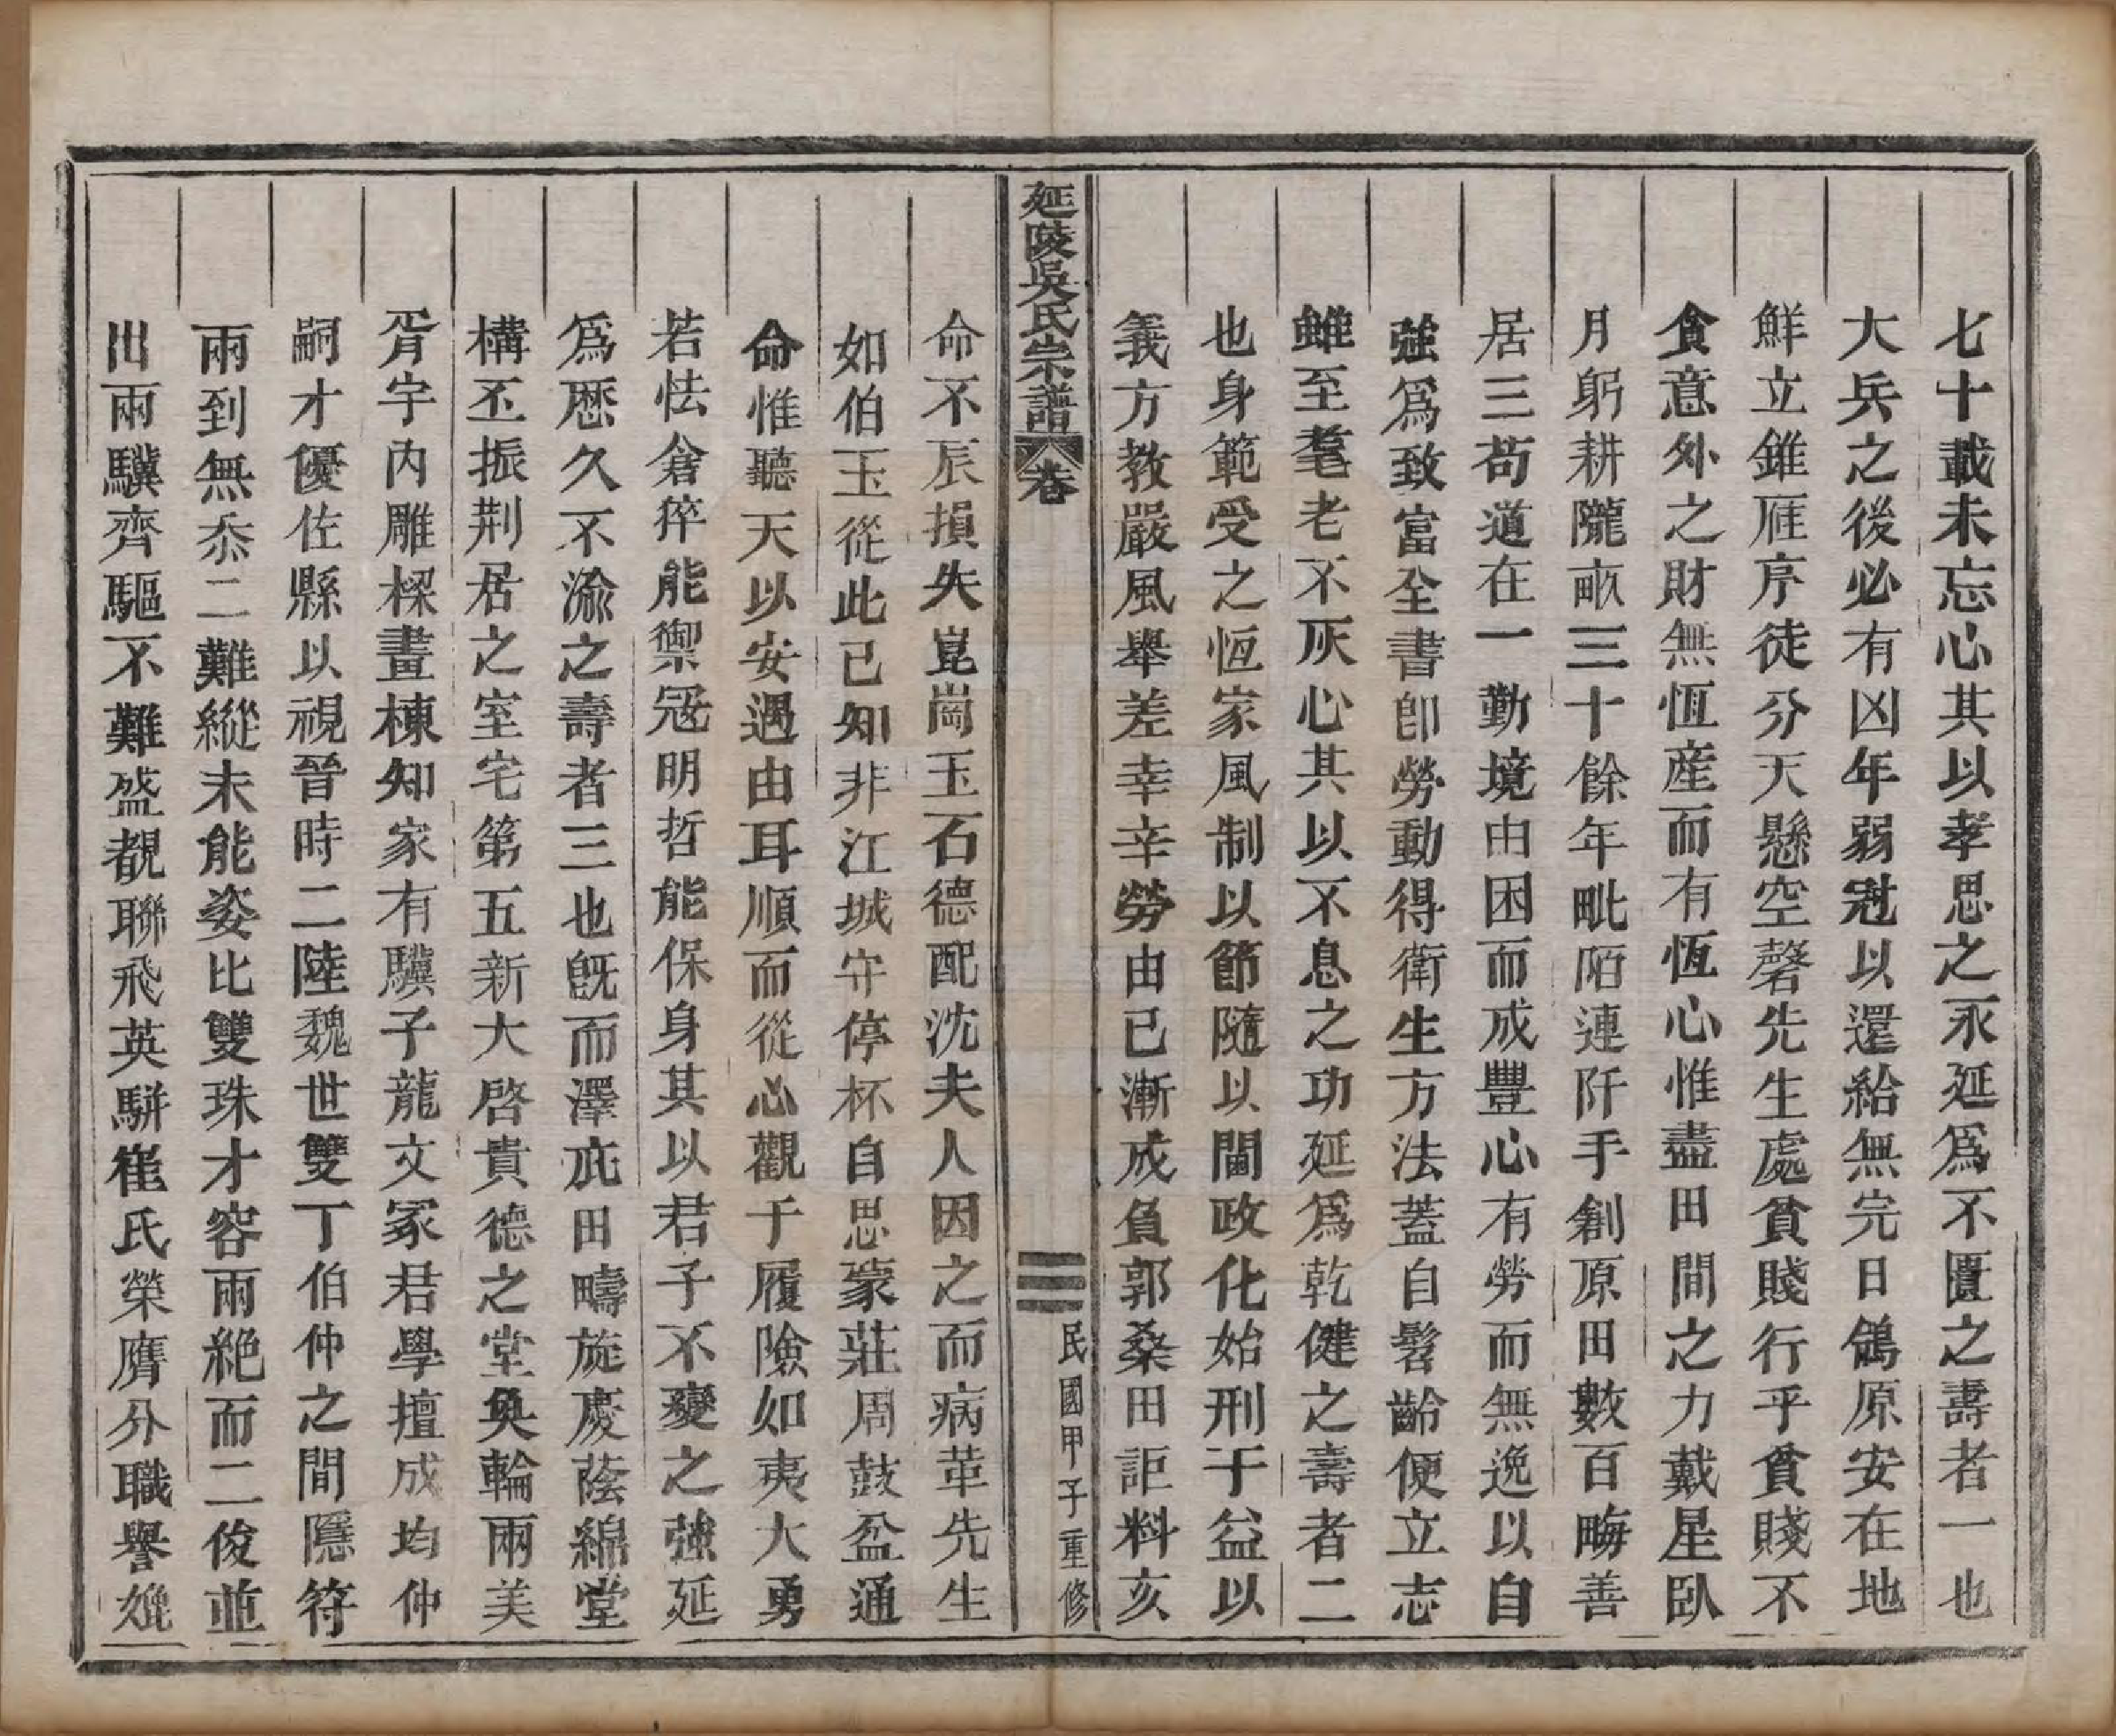 七十載未忘心其以孝思之永延爲不匱之壽者一也
大兵之後必有凶年弱冠以還給無完日鴒原安在地
鮮立錐雁序徒分天懸空磬先生處貧賤行乎貧賤不
貪意外之財無恆産而有恆心惟盡田間之力戴星臥
月躬耕隴畝三十餘年毗陌連阡手創原田數百畮善
居三苟道在一勤境由困而成豐心有勞而無逸以自
強爲致富全書卽勞動得衛生方法蓋自髫齡便立志
雖至耄老不灰心其以不息之功延爲乾健之壽者二
也身範受之恆家風制以節隨以閫政化始刑于益以
義方教嚴風舉差幸辛勞由已漸成負郭桑田詎料亥
延陵吳氏宗譜 卷
三 民國甲子重修
命不辰損失崑崗玉石德配沈夫人因之而病革先生
如伯玉從此已知非江城守停杯自思蒙莊周鼓盆通
命惟聽天以安遇由耳順而從心觀于履險如夷大勇
若怯倉猝能禦冦明哲能保身其以君子不變之強延
爲歷久不渝之壽者三也旣而澤庇田疇旋慶蔭綿堂
構丕振荆居之室宅第五新大啓貴德之堂奐輪兩美
胥宇內雕樑畫棟知家有驥子龍文冢君學擅成均仲
嗣才優佐縣以視晉時二陸魏世雙丁伯仲之間隱符
兩到無忝二難縱未能姿比雙珠才容兩絶而二俊並
出兩驥齊驅不難盛覩聯飛英駢崔氏榮膺分職譽㜻